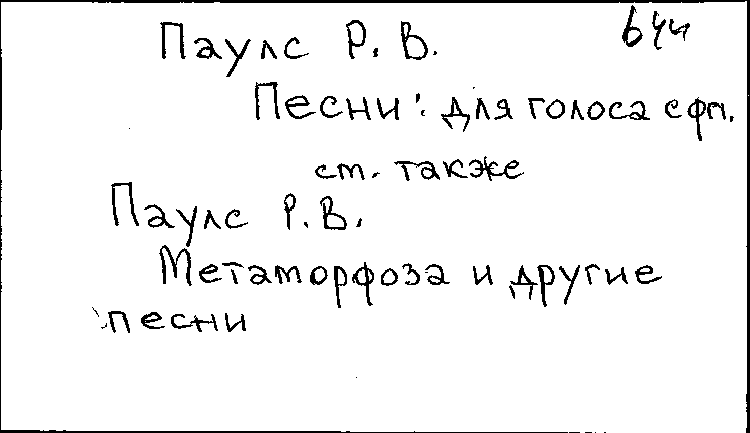 Паулс Р. В.
Песни: для голоса с фп.
см. также
Паулс Р. В.
Метаморфоза и другие
песни